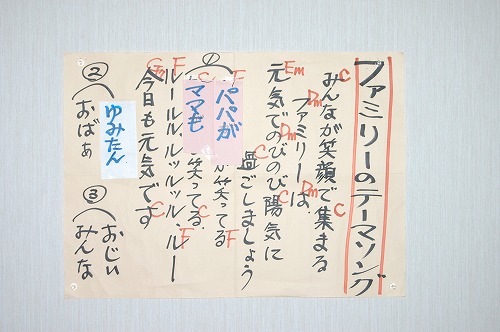 ファミリーのテーマソング
C Dm C
みんなが笑顔で集まる
Dm
ファミリーは、
Em Dm
元気でのびのび陽気に
C
過ごしましょう
① F F
パパが
が笑ってる
C C
ママも
笑ってる
F F
ルールル、ルッルッル、ルー
Gm C
今日も元気です
② おばぁ
ゆみたん
③ おじぃ
みんな